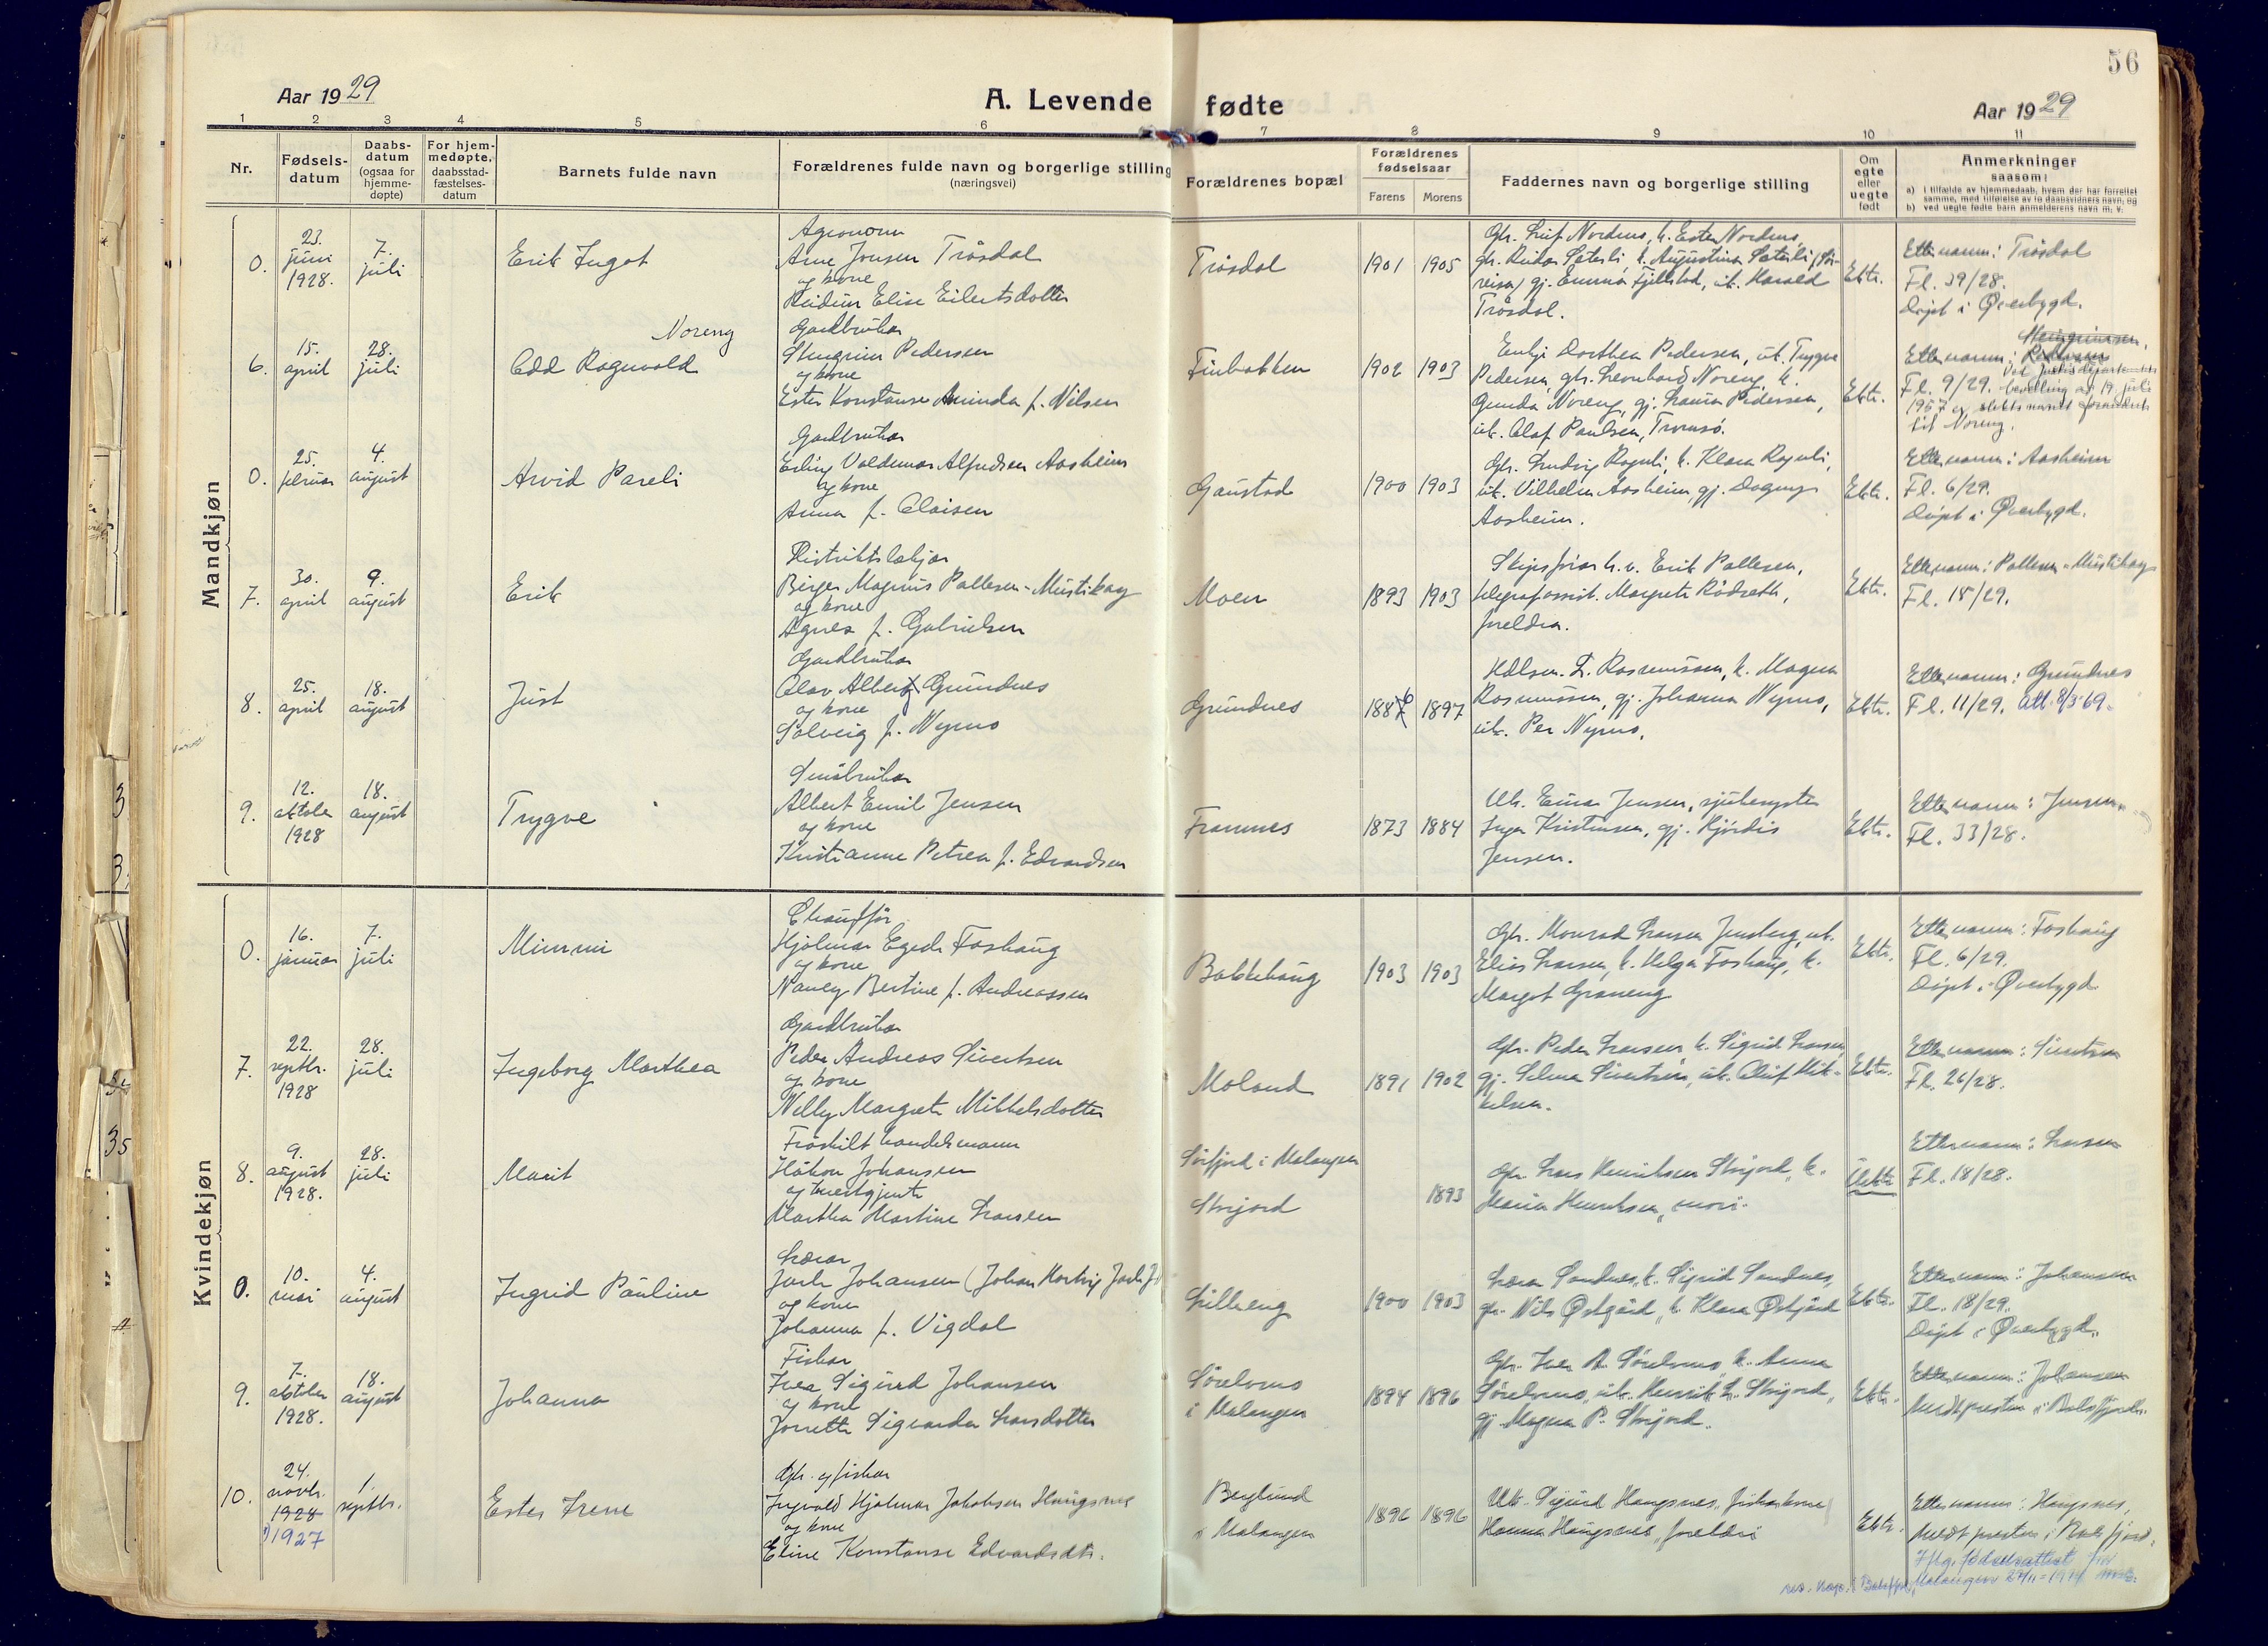 56
Aar 1929
A. Levende fødte
Aar 1929
1 2 3 4 5 6 7 8 9 10 11
Nr.
Fødselsdatum
Daabsdatum (ogsaa for hjemmedøpte)
For hjemmedøpte, daabsstadfæstelsesdatum
Barnets fulde navn
Forældrenes fulde navn og borgerlige stilling
(næringsvei)
Forældrenes bopæl
Forældrenes fødselsaar
Farens Morens
Faddernes navn og borgerlige stilling
Om egte eller uegte født
Anmerkninger
saasom:
a) i tilfælde av hjemmedaab, hvem der har forrettet samme, med tilføielse av to daabsvidners navn, og
b) ved uegte fødte barn anmelderens navn m. v.
Mandkjøn
0. 23. juni 1928. 7. juli
Erik Ingot
Agronom
Arne Jonsen Tråsdal
og kone
Reidun Elise Eilertsdotter
Tråsdal 1901 1905
Gbr. Leif Nordmo, k. Ester Nordmo,
gbr. Reidar Sæterli, k. Augustina Sæterli (Sørreisa) gj. Emma Fjellstad, uk. Harald
Tråsdal.
Ekte.
Etternamn: Tråsdal
Fl. 39/28.
Døipt i Øverbygd.
6. 15. april 28. juli
Noreng
Odd Ragnvald
Gardbrukar
Steingrim Pedersen
og kone
Ester Konstanse Aminda f. Nilsen
Finbakken 1902 1903
Enkje Dorthea Pedersen, uk. Trygve
Pedersen, gbr. Leonhard Noreng, k.
Gunda Noreng, gj. Laura Pedersen,
uk. Olaf Paulsen, Tromsø.
Ekte.
Steingrimsen,
Etternamn: Pedersen
Ved Justisdepartementets
Fl. 9/29. bevilling av 19. juli
1957 er slektsnavnet forandret
til Noreng.
0. 25. februar 4. august
Arvid Pareli
Gardbrukar
Erling Valdemar Alfredsen Aasheim
og kone
Anna f. Olaisen
Gaustad 1900 1903
Gbr. Ludvig Rognli, k. Klara Rognli,
uk. Vilhelm Aasheim, gj. Dagny
Aasheim.
Ekte.
Etternamn: Aasheim
Fl. 6/29.
Døipt i Øverbygd.
7. 30. april 9. august
Erik
Distriktslækjar
Birger Magnus Pallesen-Mustikay
og kone
Agnes f. Gabrielsen
Moen 1893 1903
Skipsførar h.v. Erik Pallesen,
telegrafassist. Margrete Rødseth,
foreldra.
Ekte.
Etternamn: Pallesen-Mustikay
Fl. 15/29.
8. 25. april 18. august
Just
Gardbrukar
Olav Albert Grundnes
og kone
Solveig f. Nymo
Grundnes 1886 1897
Rasmussen, k. Magna
Rasmussen, gj. Johanna Nymo,
uk. Per Nymo.
Ekte.
Etternamn: Grundnes
Fl. 11/29. Att. 8/5-69.
9. 12. oktober 1928 18. august
Trygve
Småbrukar
Albert Emil Jensen
og kone
Kristianne Petrea f. Edvardsen
Framnes 1873 1884
Uk. Einar Jensen, sjukesyster
Inga Kristensen, gj. Hjørdis
Jensen.
Ekte.
Etternamn: Jensen
Fl. 33/28.
Kvindekjøn
0. 16. januar 7. juli
Mimmi
Chauffør
Hjalmar Egede Foshaug
og kone
Nancy Bertine f. Andreassen
Bakkehaug 1903 1903
Gbr. Konrad Larsen Jensberg, uk.
Elias Larsen, k. Helga Foshaug, k.
Margot Graneng
Ekte.
Etternamn: Foshaug
Fl. 6/29.
Døipt i Øverbygd
7. 22. septbr. 1928 28. juli
Ingeborg Marthea
Gardbrukar
Peder Andreas Sivertsen
og kone
Nelly Margrete Mikkelsdotter
Moland 1891 1902
Gbr. Peder Larsen k. Sigrid Larsen
gj. Selma Sivertsen, uk. Oluf Mikkelsen.
Ekte.
Etternamn: Sivertsen
Fl. 26/28.
8. 9. august 1928. 28. juli
Marit
Fråskilt handelsmann
Håkon Johansen
og hushjente
Martha Martine Larsen
Sørfjord i Malangen
Storjord 1893
Gbr. Lars Henriksen Storjord, k.
Maria Henriksen, mori.
Uekte
Etternamn: Larsen
Fl. 18/28.
0. 10. mai 4. august
Ingrid Pauline
Lærar
Jarle Johansen (Johan Hartvig Jarle J.)
og kone
Johanna f. Vigdal
Lilleeng 1900 1903
Lærar Sandnes, k. Sigrid Sandnes,
gbr. Nils Østgård, k. Klara Østgård
Ekte.
Etternamn: Johansen
Fl. 18/29.
Døipt i Øverbygd.
9. 7. oktober 1928. 18. august
Johanna
Fiskar
Ivar Sigurd Johansen
og kone
Jonette Sigvarda Larsdotter
Sørelvmo
i Malangen 1894 1896
Gbr. Iver A. Sørelvmo, k. Anna
Sørelvmo, uk. Henrik L. Storjord,
gj. Magna P. Storjord.
Ekte.
Etternamn: Johansen
Meldt presten i Balsfjord.
10. 24. novbr. 1928 1) 1927 1. septbr.
Ester Irene
Gbr. og fiskar
Ingvald Hjalmar Jakobsen Haugsnes
og kone
Eline Konstanse Edvardsdtr.
Berglund
i Malangen 1896 1896
Uk. Sigurd Haugsnes, fiskarkone
Hanna Haugsnes, foreldri
Ekte.
Etternamn: Haugsnes,
Meldt presten i Balsfjord.
Iflg. fødselsattest fra
res. kap. i Balsfjord, Malangen